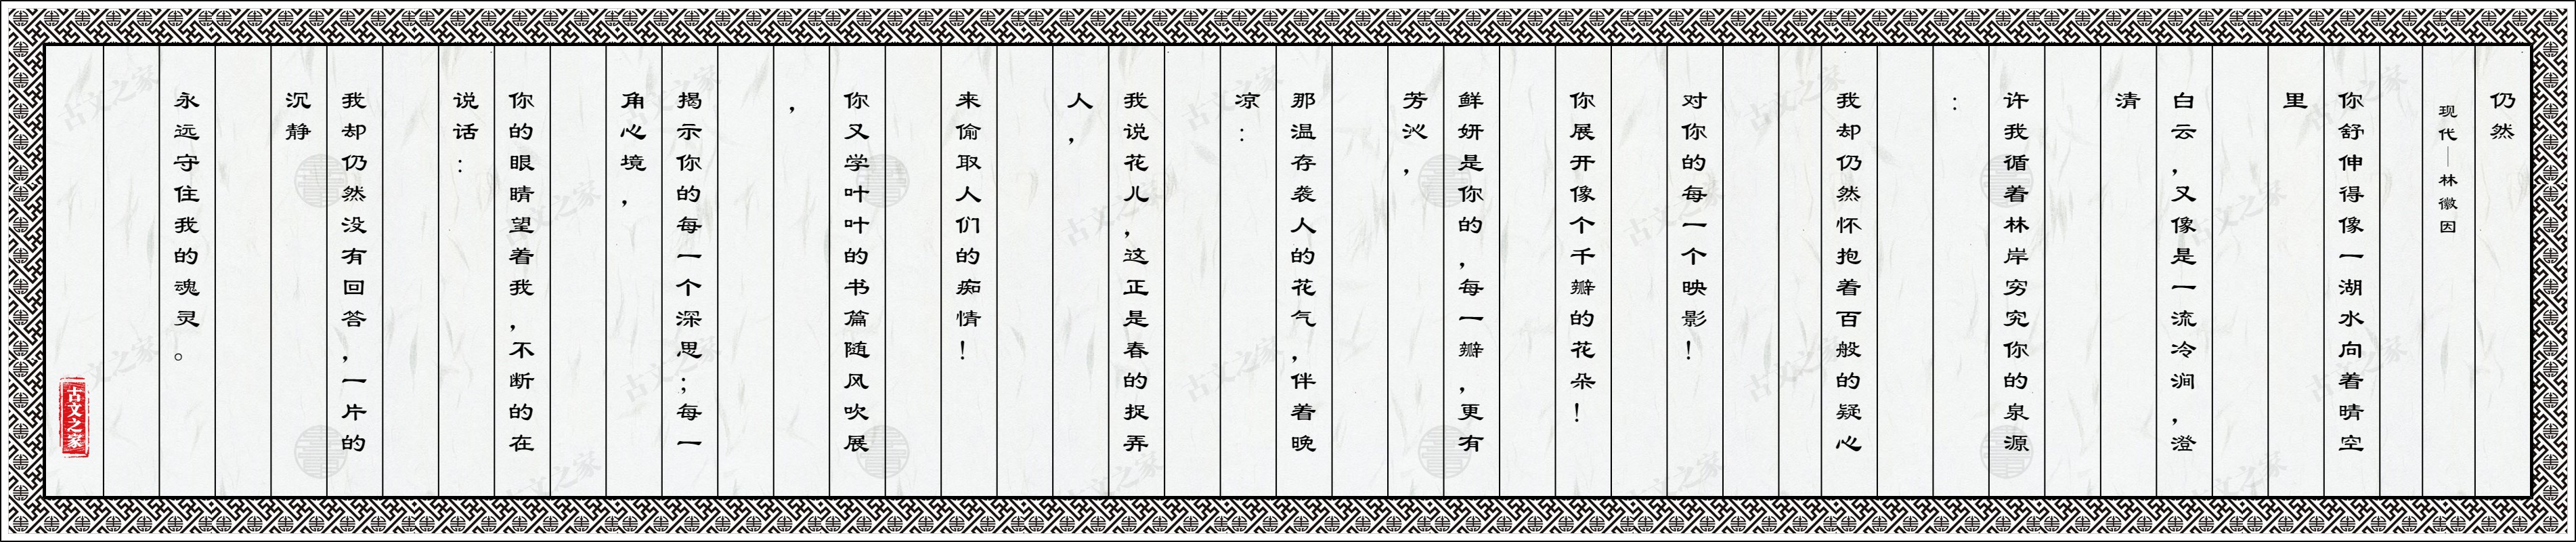 仍然
现代——林徽因
你舒伸得像一湖水向着晴空
里
白云，又像是一流冷涧，澄
清
许我循着林岸穷究你的泉源
：
我却仍然怀抱着百般的疑心
对你的每一个映影！
你展开像个千瓣的花朵！
鲜妍是你的，每一瓣，更有
芳沁，
那温存袭人的花气，伴着晚
凉：
我说花儿，这正是春的捉弄
人，
来偷取人们的痴情！
你又学叶叶的书篇随风吹展
，
揭示你的每一个深思；每一
角心境，
你的眼睛望着我，不断的在
说话：
我却仍然没有回答，一片的
沉静
永远守住我的魂灵。
古文之家